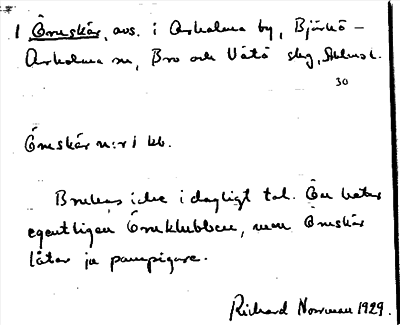 1 Öneskär, avs. i Arholma by, Björkö –
Arholma sn, Bro och Vätö skg, Sthlms l.
30
Öneskär n:r 1 kb.
Brukas icke i dagligt tal. Ön heter
egentligen Öneklubben, men Öneskär
låter ju pampigare.
Richard Norrman 1929.